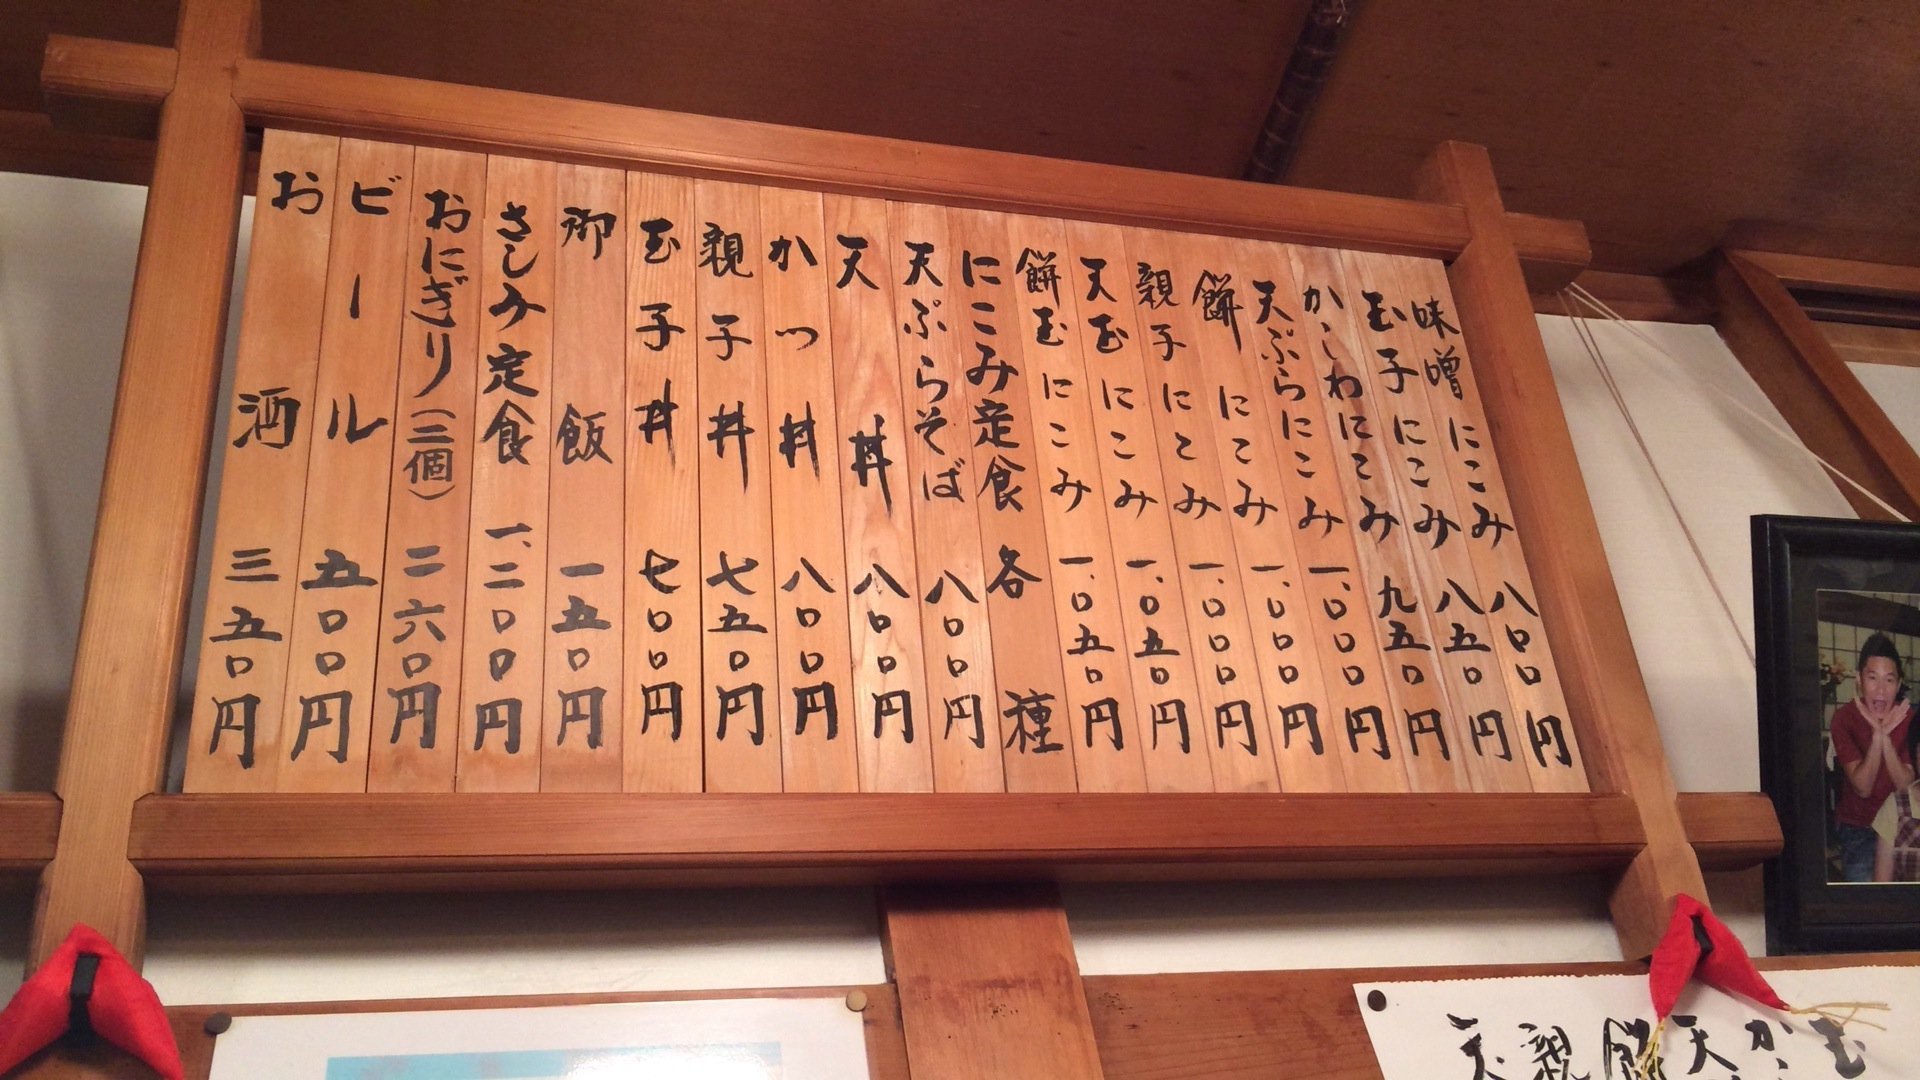 味噌にこみ 八〇〇円
玉子にこみ 八五〇円
かしわにこみ 九五〇円
天ぷらにこみ 一、〇〇〇円
餅にこみ 一、〇〇〇円
親子にこみ 一、〇〇〇円
天玉にこみ 一、〇五〇円
餅玉にこみ 一、〇五〇円
にこみ定食 各種
天ぷらそば 八〇〇円
天丼 八〇〇円
かつ丼 八〇〇円
親子丼 七五〇円
玉子丼 七〇〇円
御飯 一五〇円
さしみ定食 一、二〇〇円
おにぎり(三個) 二六〇円
ビール 五〇〇円
お酒 三五〇円
玉
か
天
餅
親
天